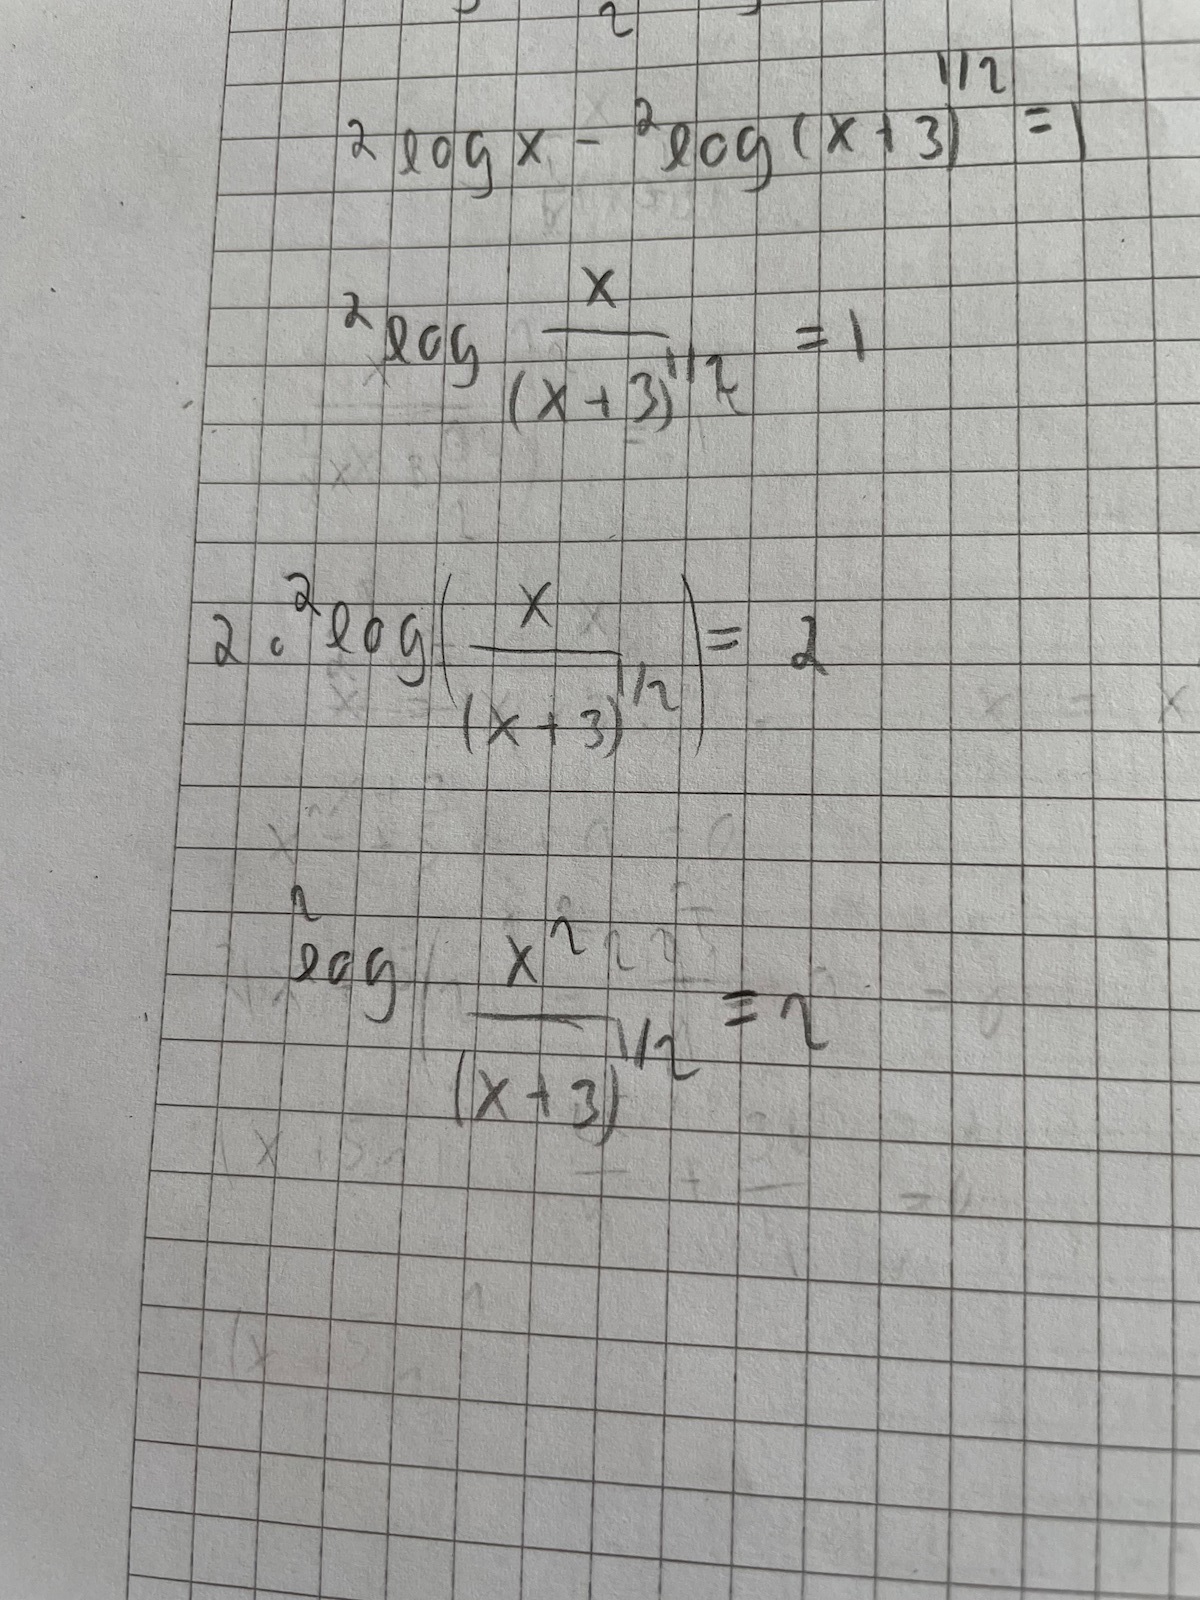 2
²log x - ²log (x+3)^1/2 = 1
²log x/(x+3)^1/2 = 1
2 · ²log (x/(x+3)^1/2) = 2
²log x²/(x+3)^1/2 = 2